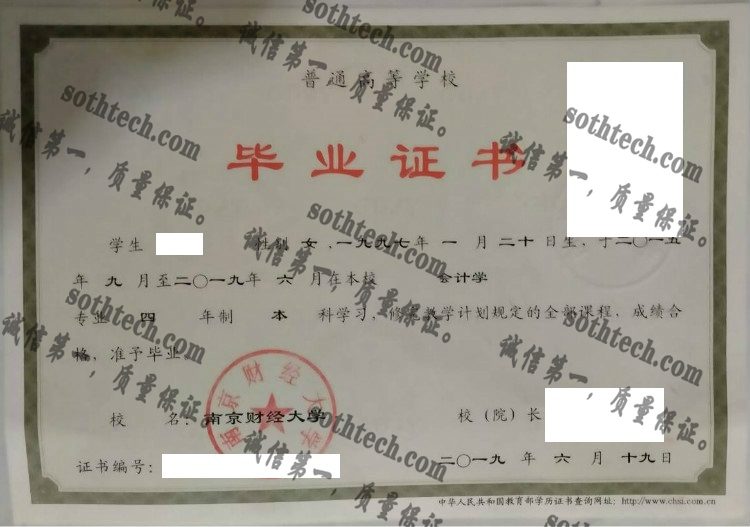 普通高等学校
毕业证书
学生 性别 女 , 一九九七 年 一 月 二十 日生, 于二〇一五
年 九 月至二〇一九年 六 月在本校 会计学
专业 四 年制 本 科学习, 修完教学计划规定的全部课程, 成绩合
格, 准予毕业。
校 名: 南京财经大学 校 (院) 长
南京财经大学
证书编号: 二〇一九 年 六 月 十九日
中华人民共和国教育部学历证书查询网址: http://www.chsi.com.cn
sothtech.com
诚信第一，质量保证。
sothtech.com
诚信第一，质量保证。
sothtech.com
诚信第一，质量保证。
sothtech.com
诚信第一，质量保证。
sothtech.com
诚信第一，质量保证。
sothtech.com
诚信第一，质量保证。
sothtech.com
诚信第一，质量保证。